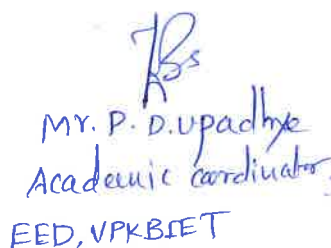 Mr. P. D. Upadhye
Academic cordinator,
EED, VPKBIET